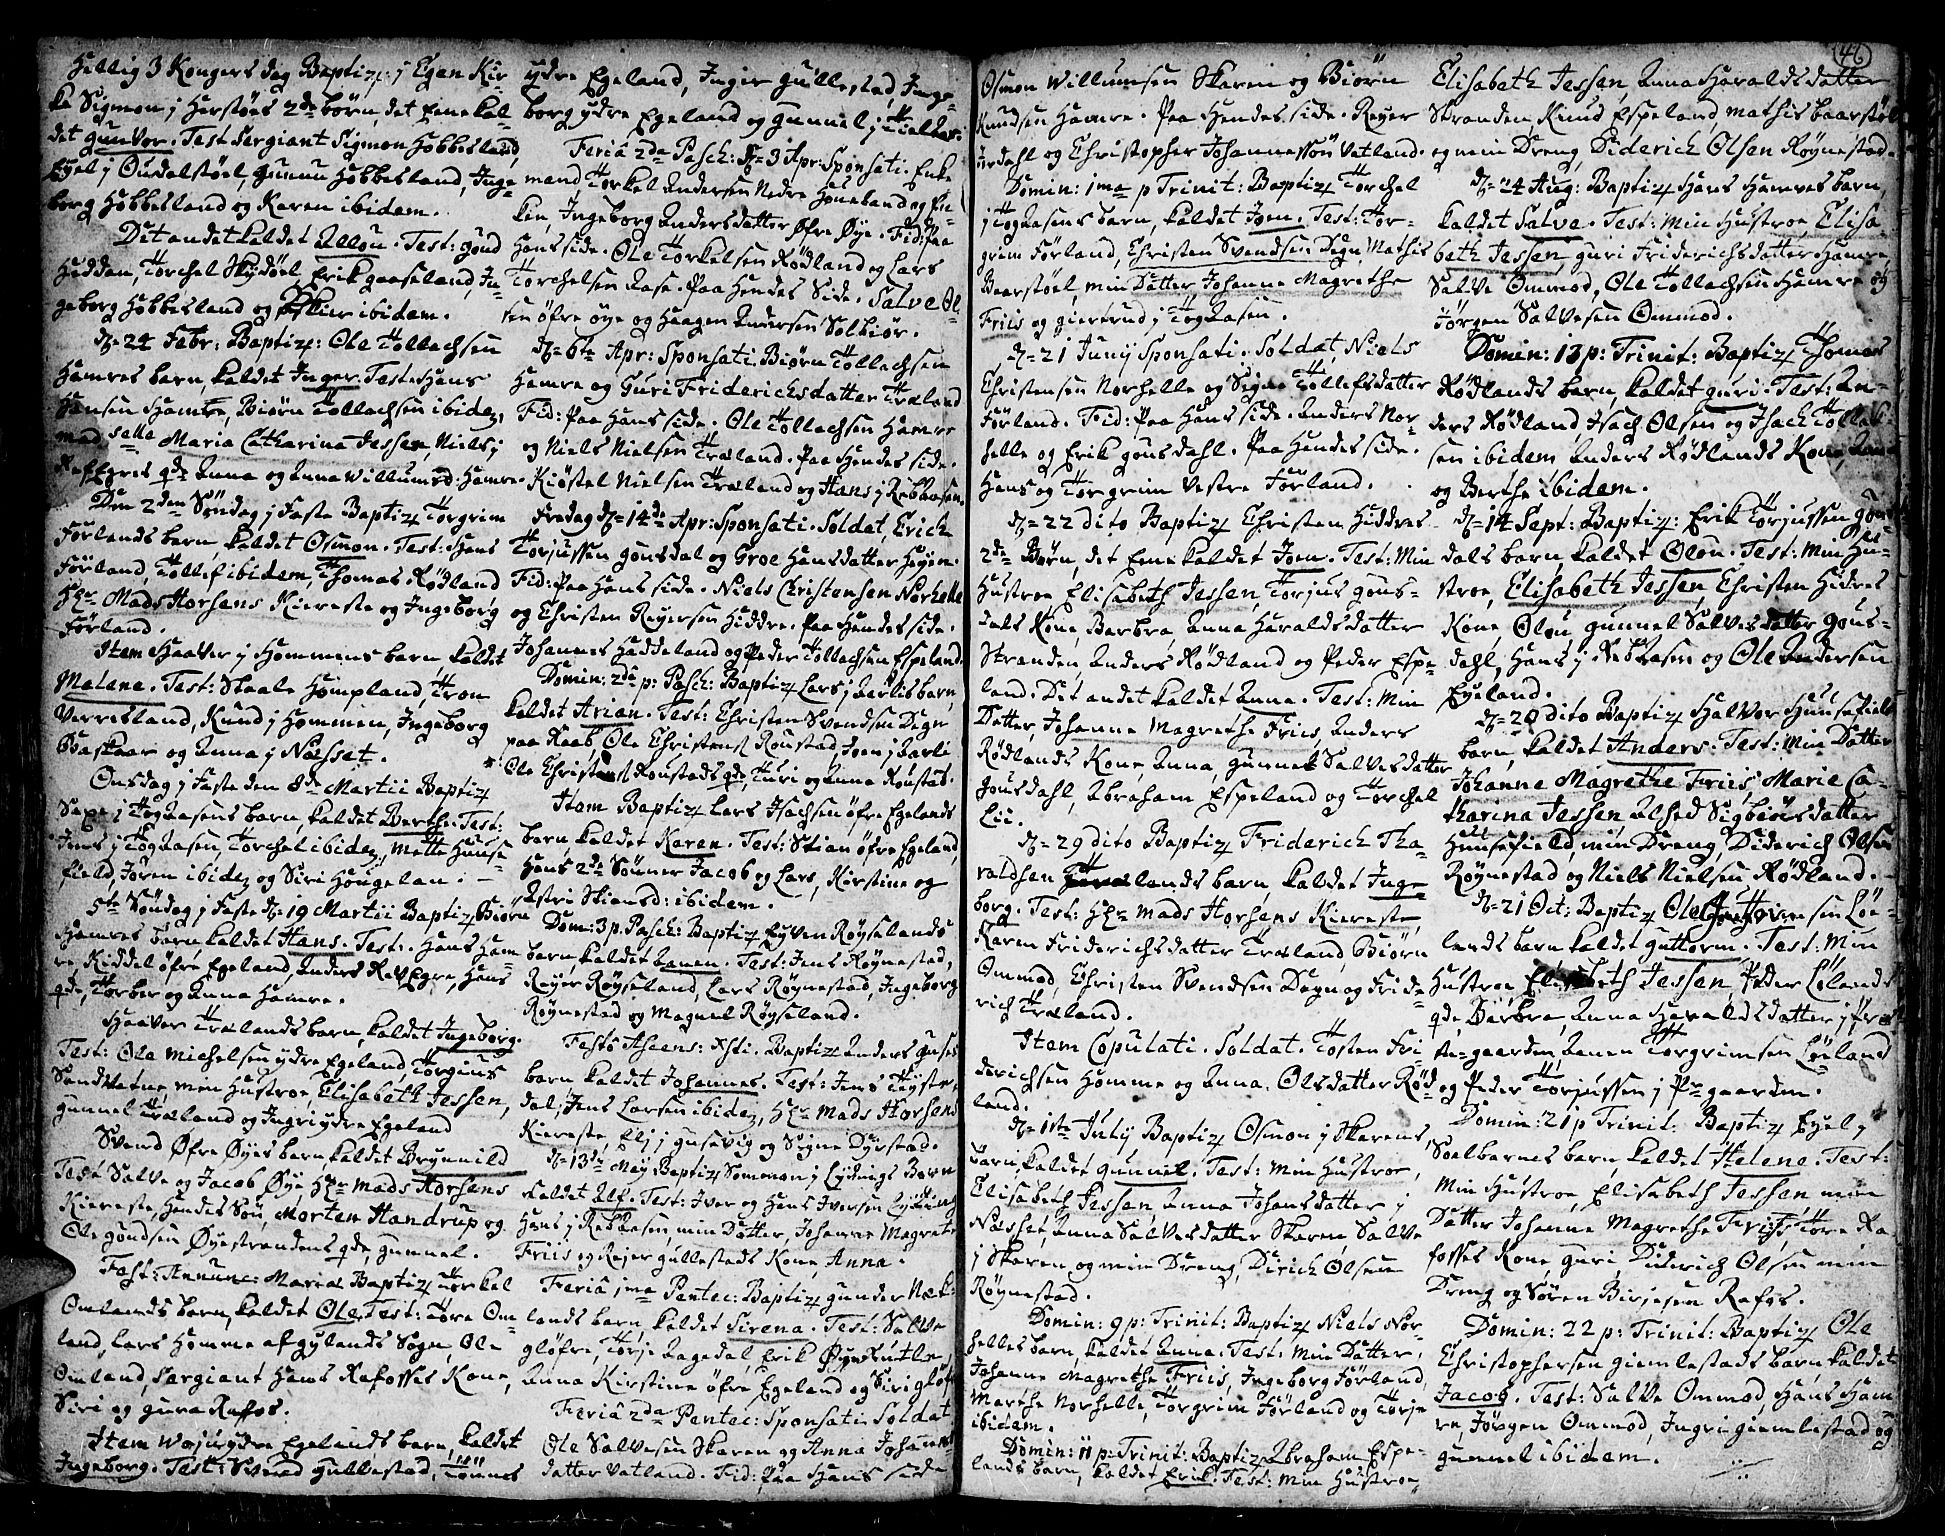 Hellig 3 Kongers dag Baptiz: j Egen Kir-
ke Sigmon j Herstöls 2de börn, det Eene kal-
det Gunvor. Test. Sergiant Sigmon Höbbesland
Eyel j Oudalstöel, Gunnu Höbbesland, Inge-
borg Höbbesland og Karen ibidem.
Det andet kaldet Allou. Test: Gond
Hidden, Torchel Skydöel, Erik Gaaseland, In-
geborg Höbbesland og ibidem.
D. 24 Febr: Baptiz: Ole Tollachsen
Hamres barn, kaldet Inger. Test: Hans
Hansen Hamre, Biörn Tollachsen ibidem,
mad:selle Maria Catharina Jessen, Niels j
Refsegres qde Anna og Anna Willumsd: Hamre.
Den 2den Söndag j Faste Baptiz Torgrim
Förlands barn, kaldet Osmon. Test: Hans
Förland, Tollef ibidem, Thomas Rödland
Hr Mads Horsens Kiereste og Ingeborg
Förland.
Item Haaver j Hommens barn kaldet
Malene. Test: Staale Hompland, Tron
Verrisland, Knud j Hommen, Ingeborg
Baskaar og Anna j Næsset.
Onsdag j Faste den 8de Martii Baptiz
Saxe j Togaasens barn, kaldet Berthe. Test:
Jens j Togaasen, Torchel ibidem, Mette Huuse-
field, Joren ibidem og Siri Hougelan:
5te Söndag j Faste d. 19 Martii Baptiz Biörn
Hamres barn kaldet Hans. Test: Hans Ham-
re, Kiddel öfre Egeland, Anders Refsegre, Hans
qde, Torber og Anna Hamre.
Haaver Trælands barn, kaldet Ingeborg.
Test: Ole Michelsen ydre Egeland, Torgius
Sandvatne, min Hustroe, Elisabeth Jessen,
Gunnel Træland og Ingri ydre Egeland
Svend Öfre Öyes barn, kaldet Brynnild
Test Salve og Jacob Öye, Hr Mads Horsens
Kiereste, Hendes Sön, Morten Handrup og
Ole Gundsen Öyestrandens qde, Gunnel.
Fest: Annunc: Mariæ Baptiz Torkel
Omlands barn, kaldet Ole. Test: Tore Om-
land, Lars Homme af Gylands Sogn, Ole
Omland, Sargiant Hans Rafosses Kone,
Siri og Gura Rafos.
Item ydre Egelands barn, kaldet
Ingeborg. Test: Svend Gullestad, Tönnes
ydre Egeland, Inger Gullestad, Inge-
borg ydre Egeland og Gunnel j
Feriâ 2da Pasch: d. 3 Apr: Sponsati. Enke
mand, Torkel Andersen Nedre Höneland og En-
ken, Ingeborg Andersdatter Öfre Öye. Fid: Paa
Hans side. Ole Torkelsen Rödland og Lars
Torchelsen Aase. Paa Hendes Side. Salve Ol-
sen öfre öye og Haagen Andersen Solbiör.
D. 6te Apr: Sponsati. Biörn Tollachsen
Hamre og Guri Friderichsdatter Træland
Fid: Paa Hans side. Ole Tollachsen Hamre
og Niels Nielsen Træland. Paa Hendes side.
Kiöstel Nielsen Træland og Hans j Rebbaasen.
Fredag d. 14de Apr: Sponsati. Soldat, Erich
Torjussen Gousdal og Groe Hansdatter Heyem.
Fid: Paa Hans side. Niels Christensen Norhelle
og Christen Reyersen Hiddre. Paa Hendes side.
Johannes Haddeland og Peder Tollachsen Espeland.
Domin: 2da p: Pasch: Baptiz Lars j Aarlis barn
kaldet Arian. Test: Christen Svendsen Degn
paa Raab, Ole Christens. Roustad, Joen j Aarli
Ole Christens. Roustads qde, Turi og Anna Roustad.
Item Baptiz Lars Isachsen öfre Egelands
barn, kaldet Karen. Test: Stian öfre Egeland,
Hans 2de Sönner Jacob og Lars, Kirstine og
Astri Stiansd: ibidem.
Dom: 3 p. Pasch: Baptiz Eyven Röyselands
barn kaldet Aanen. Test: Jens Röynestad,
Reyer Röyseland, Lars Röynestad, Ingeborg
Röynestad og Magnel Röyseland.
Festo Ascens: Xsti. Baptiz Anders Guses
barn kaldet Johannes. Test: Jens Thyste-
dal, Jens Larsen ibidem, Hr Mads Horsens
Kiereste, Elj j Gusevig og Signe Dyrstad.
D. 13de May Baptiz Sommon j Lydings Barn
kaldet Alf. Test: Iver og Hans Iversen Lyding
Hans j Rebbaasen, min Datter, Johanne Magrete
Friis og Rejer Gullestads Kone, Anna.
Feriâ 1ma Pentec: Baptiz Gunder Næk-
lands barn, kaldet Sirena. Test: Salve
Glöfre, Torje Aagedal, Erik Öyesutle,
Anna Kirstine öfre Egeland og Siri Glöfre
Feriâ 2da Pentec: Sponsati. Soldat
Ole Salvesen Skaren og Anna Johannis
datter Vatland. Fid: Paa Hans side
Osmon Willumsen Skaren og Biörn
Knudsen Hamre. Paa Hendes side. Reyer
Urdahl og Christopher Johannessön Vatland.
Domin: 1ma p Trinit: Baptiz Torchel
j Togaasens barn, kaldet Joen. Test: Tor-
grim Förland, Christen Svendsen Degn, Mathis
Baarstöel, min Datter Johanne Magrethe
Friis og Giertrud j Togaasen.
D. 21 Junij Sponsati. Soldat Niels
Christensen Norhelle og Signe Tollefsdatter
Förland. Fid: Paa Hans side. Anders Nor-
helle og Erik Gousdahl. Paa Hendes side.
Hans og Torgrim Vestre Förland.
D. 22 dito Baptiz Christen Hiddres
2de Börn, det Eene kaldet Joen. Test: Min
Hustroe Elisabeth Jessen, Torjus Gous-
dals Kone, Barbra, Anna Haraldsdatter
Stranden, Anders Rödland og Peder Espe-
land. Det andet kaldet Anna. Test: Min
Datter, Johanne Magrethe Friis, Anders
Rödlands Kone, Anna, Gunnel Salvesdatter
Gousdahl, Abraham Espeland og Torchel
Lii.
D. 29 dito Baptiz Friderich Tha-
raldsen Trælands barn, kaldet Inge
borg. Test: Hr Mads Horsens Kiereste,
Karen Friderichsdatter Træland, Biörn
Ommod, Christen Svendsen Degn og Fride-
rich Træland.
Item Copulati. Soldat. Tosten Fri-
derichsen Homme og Anna Olsdatter Röd-
land.
D. 1ste July Baptiz Osmon j Skarens
barn, kaldet Gunnel. Test: Min Hustroe,
Elisabeth Jessen, Anna Johansdatter j
Næsset, Anna Salvesdatter Skaren, Salve
j Skaren, og min Dreng, Dirich Olsen
Röynestad.
Domin: 9 p: Trinit: Baptiz Niels Nor-
helles barn, kaldet Anna. Test: Min Datter,
Johanne Magrethe Friis, Ingeborg Förland,
Marthe Norhelle, Torgrim Förland og Torje
ibidem.
Domin: 11 p: Trinit: Baptiz Abraham Espe-
lands barn, kaldet Erik. Test: Min Hustroe,
46
Elisabeth Jessen, Anna Haraldsdatter
Stranden, Knud Espeland, Mathis Baarstöel
og min Dreng, Diderich Olsen Röynestad.
D. 24 Aug: Baptiz Hans Hamres barn,
kaldet Salve. Test: Min Hustroe, Elisa-
beth Jessen, Guri Friderichsdatter Hamre,
Salve Ommod, Ole Tollachsen Hamre og
Jörgen Salvesen Ommod.
Domin: 13 p: Trinit: Baptiz Thomas
Rödlands barn, kaldet Guri. Test: An-
ders Rödland, Isach Olsen og Isach Tollef-
sen ibidem, Anders Rödlands Kone, Anna
og Berthe ibidem.
D. 14 Sept: Baptiz: Erik Torjussen Gous-
dals barn, kaldet Olou. Test: Min Hu-
stroe, Elisabeth Jessen, Christen Hidres
Kone, Olou, Gunnel Salvesdatter Gous-
dahl, Hans j Rebbaasen og Ole Andersen
Eyeland.
D. 29 dito Baptiz Halvor Huusefields
barn, kaldet Anders. Test: Min Datter
Johanne Magrethe Friis, Marie Ca-
tharina Jessen, Alhed Sigbiörsdatter
Huusefield, min Dreng, Diderich Olsen
Röynestad og Niels Nielsen Rödland.
D. 21 Oct: Baptiz Ole Guttormsen Löe-
lands barn kaldet Guttorm. Test: Min
Hustroe Elisabeth Jessen, Peder Lölands
qde, Barbra, Anna Haraldsdatter j Præ-
ste-gaarden, Aanen Torgrimsen Löeland
og Peder Torjussen j Pr-gaarden.
Domin: 21 p Trinit: Baptiz Eyel j
Soelbarnes barn, kaldet Helene. Test:
Min Hustroe, Elisabeth Jessen, min
Datter Johanne Magrethe Friis, Tore Ra-
fosses Kone, Guri, Diderich Olsen min
Dreng og Sören Birjesen Rafos.
Domin: 22 p: Trinit: Baptiz Ole
Christophersen Giemlestads barn kaldet
Jacob. Test: Salve Ommod, Hans Ham-
re, Jörgen Ommod, Ingri Giemlestad og
Gunnel ibidem.